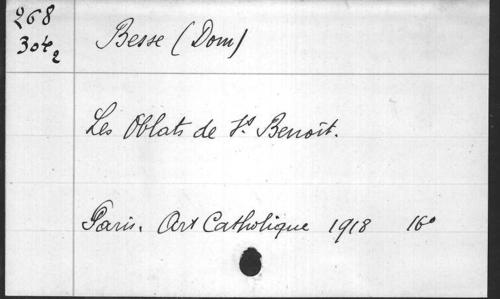 268
304₂
Besse (Dom)
Les Oblats de St. Benoît.
Paris. Art Catholique 1918 16°